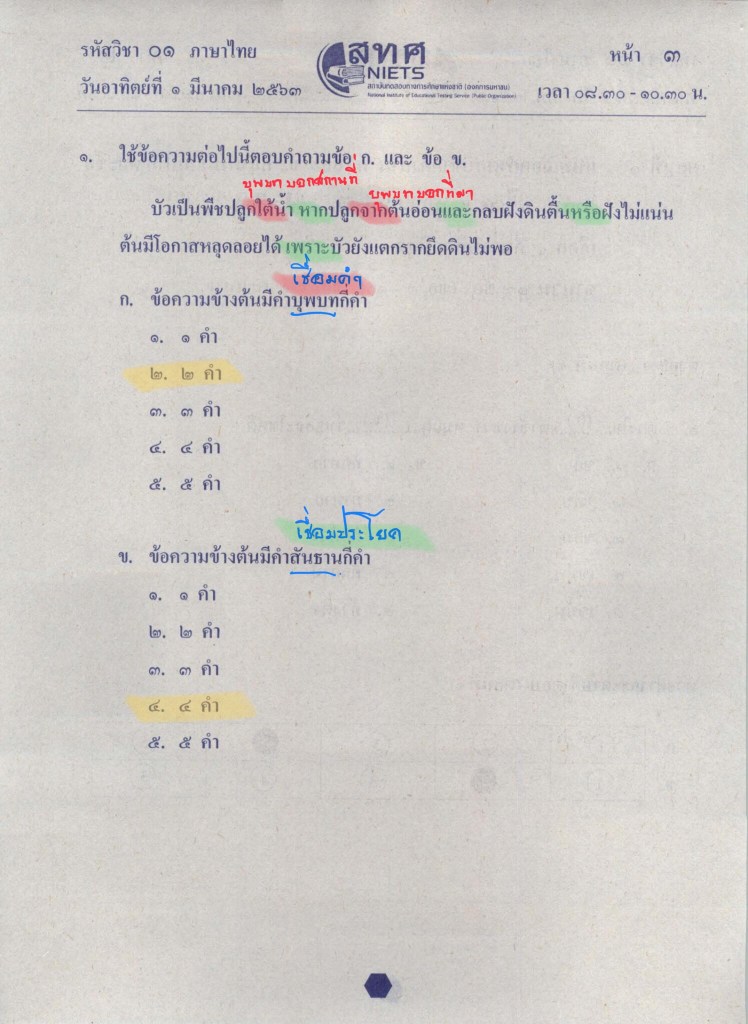 รหัสวิชา ๐๑ ภาษาไทย
สทศ
NIETS
สถาบันทดสอบทางการศึกษาแห่งชาติ (องค์การมหาชน)
National Institute of Educational Testing Service (Public Organization)
หน้า ๓
วันอาทิตย์ที่ ๑ มีนาคม ๒๕๖๓
เวลา ๐๘.๓๐ - ๑๐.๓๐ น.
๑. ใช้ข้อความต่อไปนี้ตอบคำถามข้อ ก. และ ข้อ ข.
บุพบทบอกสถานที่ บุพบทบอกที่มา
บัวเป็นพืชปลูกใต้น้ำ หากปลูกจากต้นอ่อนและกลบฝังดินตื้นหรือฝังไม่แน่น
ต้นมีโอกาสหลุดลอยได้ เพราะบัวยังแตกรากยึดดินไม่พอ
เชื่อมคำ
ก. ข้อความข้างต้นมีคำบุพบทกี่คำ
๑. ๑ คำ
๒. ๒ คำ
๓. ๓ คำ
๔. ๔ คำ
๕. ๕ คำ
เชื่อมประโยค
ข. ข้อความข้างต้นมีคำสันธานกี่คำ
๑. ๑ คำ
๒. ๒ คำ
๓. ๓ คำ
๔. ๔ คำ
๕. ๕ คำ